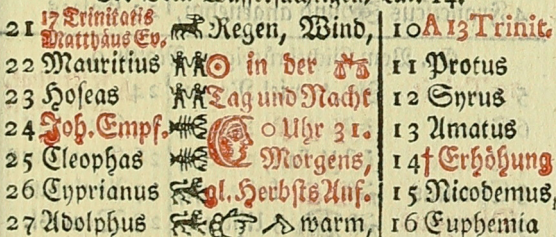 21 17 Trinitatis Matthäus Ev. Regen, Wind, 10 A 13 Trinit.
22 Mauritius ☉ in der ♎ 11 Protus
23 Hoſeas Tag und Nacht 12 Syrus
24 Joh. Empf. 0 Uhr 31. 13 Amatus
25 Cleophas Morgens, 14 † Erhöhung
26 Cyprianus gl. Herbſts Anf. 15 Nicodemus,
27 Adolphus warm, 16 Euphemia